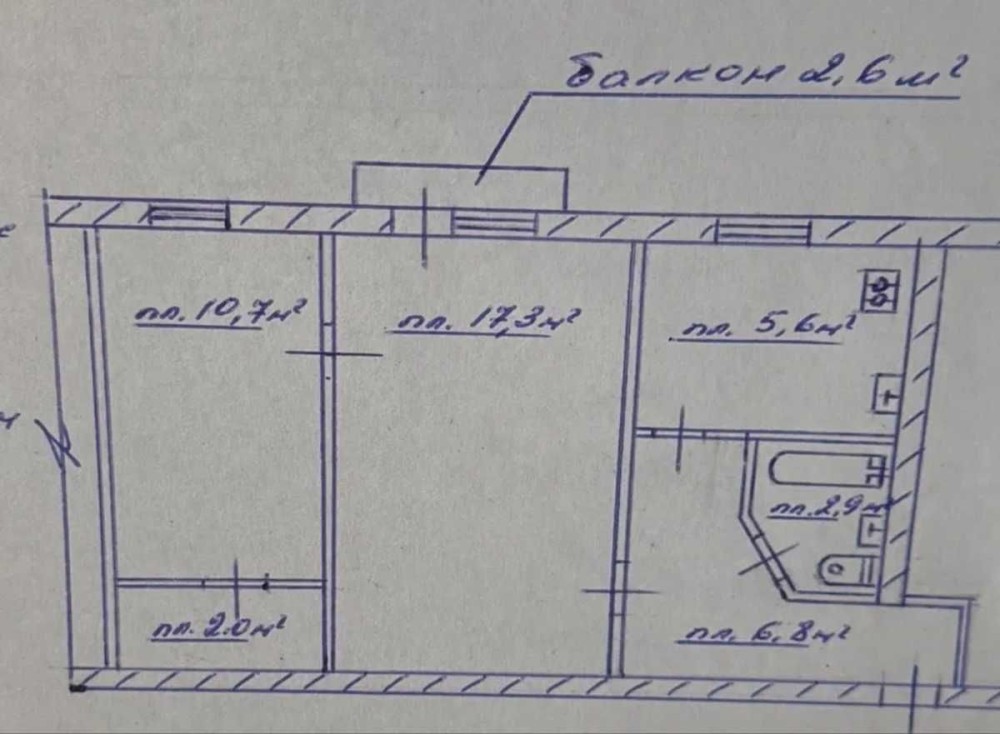 Балкон 2,6 м²
пл. 10,7м²
пл. 17,3м²
пл. 5,6м²
пл. 2,9м²
пл. 2.0м²
пл. 6,8м²